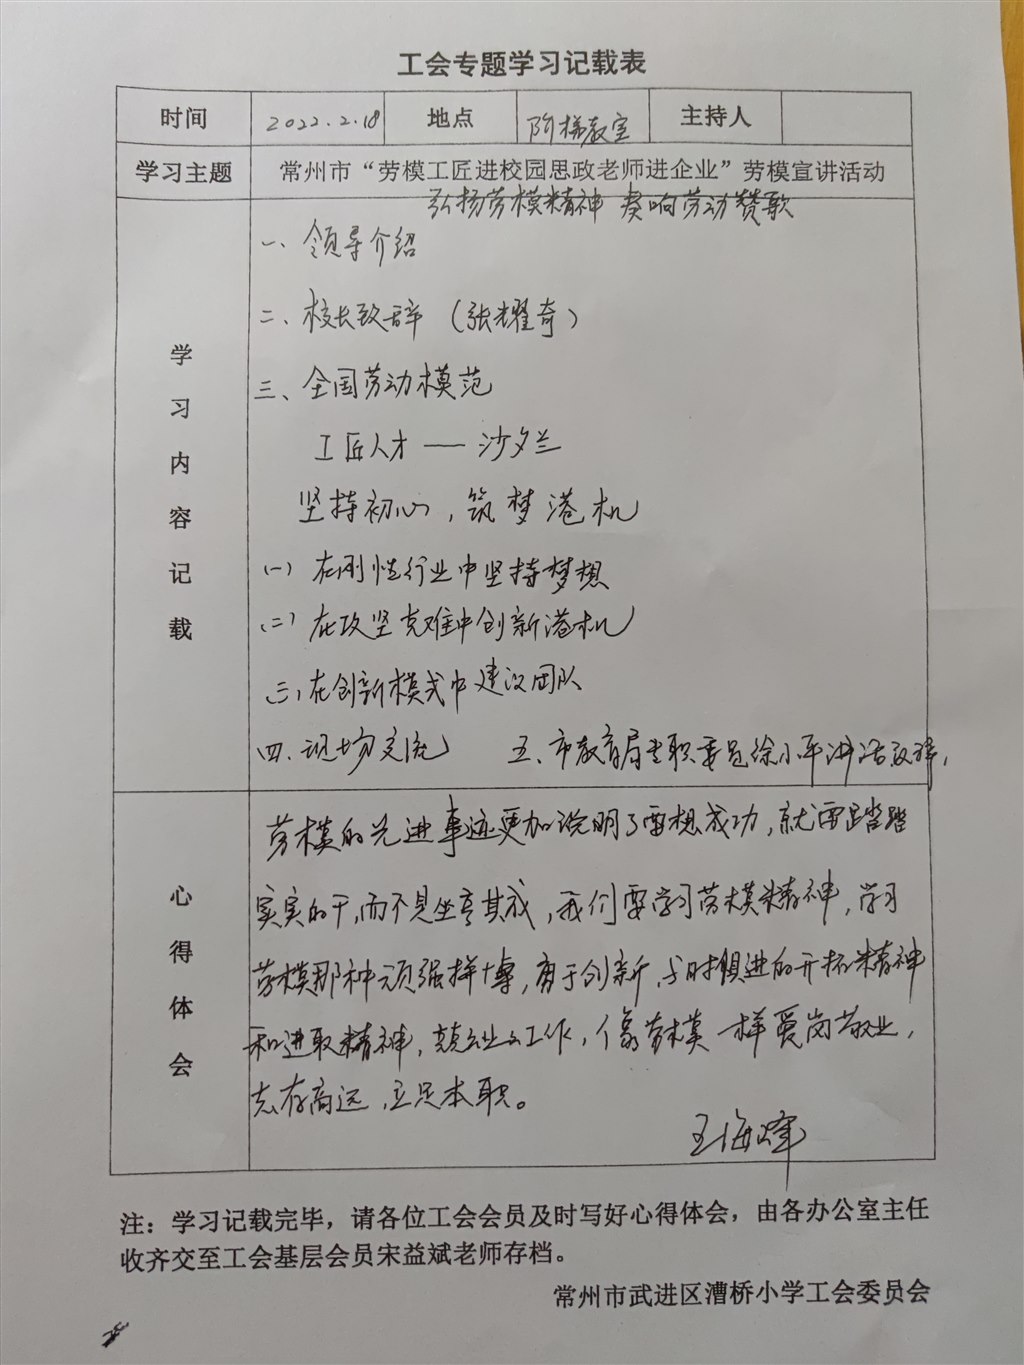 工会专题学习记载表
时间 2022.2.18 地点 阶梯教室 主持人
学习主题 常州市“劳模工匠进校园思政老师进企业”劳模宣讲活动
弘扬劳模精神 奏响劳动赞歌
学习内容记载
一、领导介绍
二、校长致辞（张耀奇）
三、全国劳动模范
工匠人才——沙夕兰
坚持初心，筑梦港机
(一) 在刚性行业中坚持梦想
(二) 在攻坚克难中创新港机
(三) 在创新模式中建设团队
四、现场交流 五、市教育局专职委员徐小平讲话致辞，
心得体会
劳模的先进事迹更加说明了要想成功，就要踏踏
实实的干，而不是坐享其成，我们要学习劳模精神，学习
劳模那种顽强拼博，勇于创新、与时俱进的开拓精神
和进取精神，兢兢业业工作，像劳模一样爱岗敬业，
志存高远，立足本职。
王海峰
注：学习记载完毕，请各位工会会员及时写好心得体会，由各办公室主任
收齐交至工会基层会员宋益斌老师存档。
常州市武进区漕桥小学工会委员会